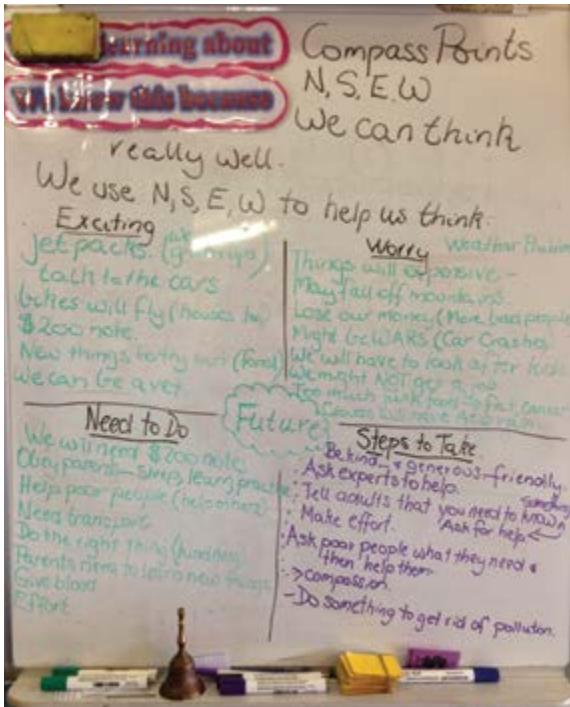 learning about
We know this because
Compass Points
N, S, E, W
We can think
really well.
We use N, S, E, W to help us think.
Exciting
Jet packs.
talk to the cars
Bikes will fly (houses too)
$200 note.
New things to try out (food)
We can be a vet.
Worry
Weather
Things will expensive -
May fall off mountains.
Lose our money (More bad people
Might be WARS (Car Crashes)
We will have to look after kids
We might NOT get a job
Too much junk food fat, cancer
Future
Need to Do
We will need $200 note
Obey parents - sleep, learn, practise
Help poor people (help others)
Need transport
Do the right thing (kindness)
Parents need to learn new things
Give blood
Effort
Steps to Take
Be kind & generous - friendly.
Ask experts to help.
Tell adults that you need to know something
Make effort. Ask for help
Ask poor people what they need &
then help them
> compassion.
- Do something to get rid of pollution.